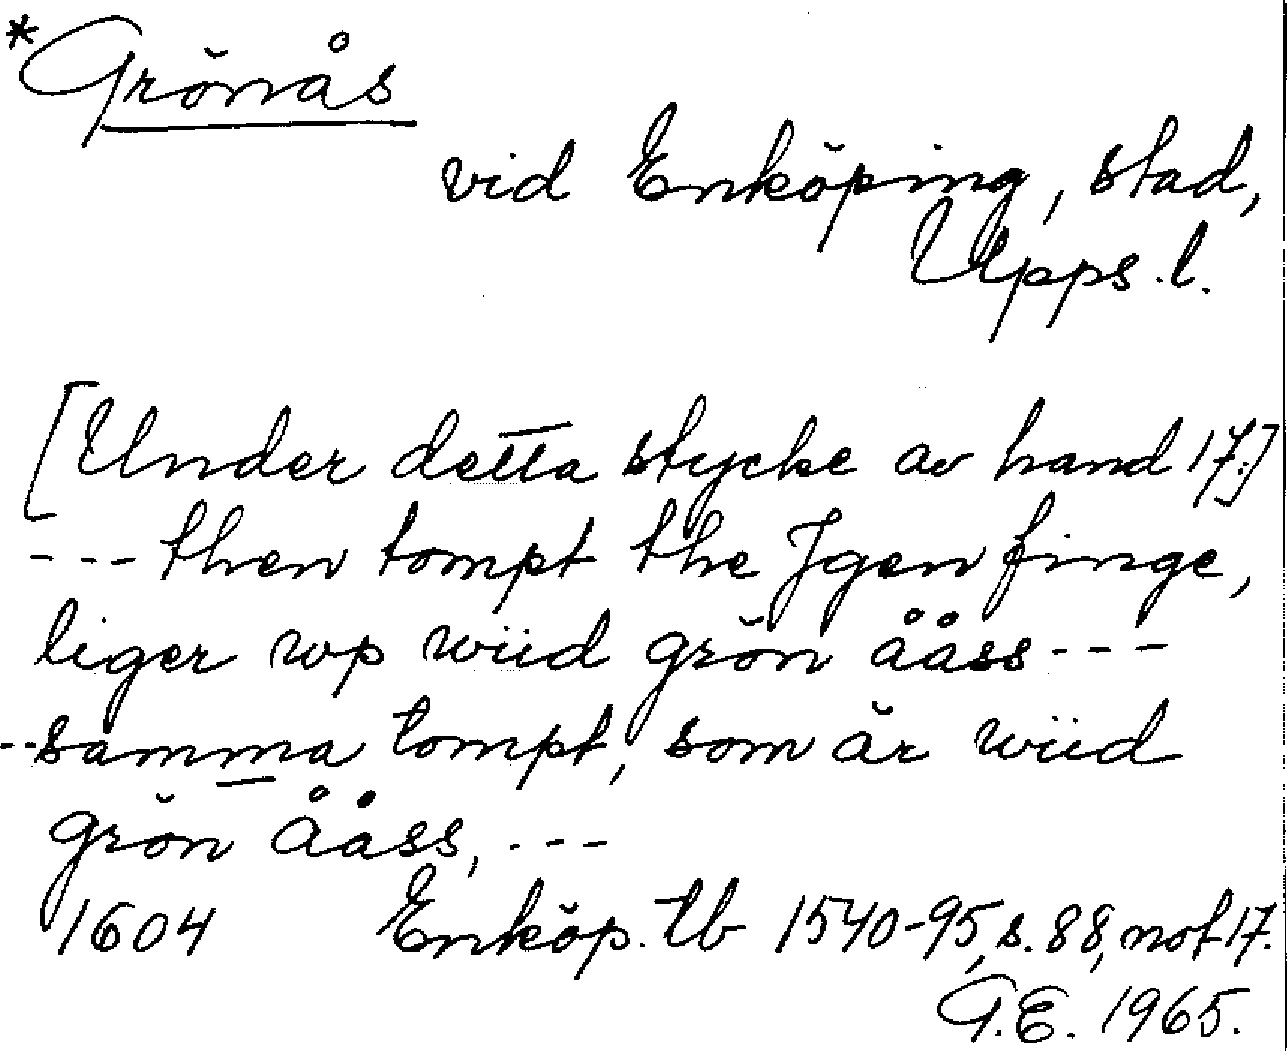 *Grönås
vid Enköping, stad,
Upps.l.
[Under detta stycke av hand 17:]
---then tompt the Jgen finge,
liger wp wiid grön ååss---
--samma tompt, som är wiid
grön Ååss, ---
1604 Enköp. tb 1540-95, s. 88, not 17.
G.E. 1965.